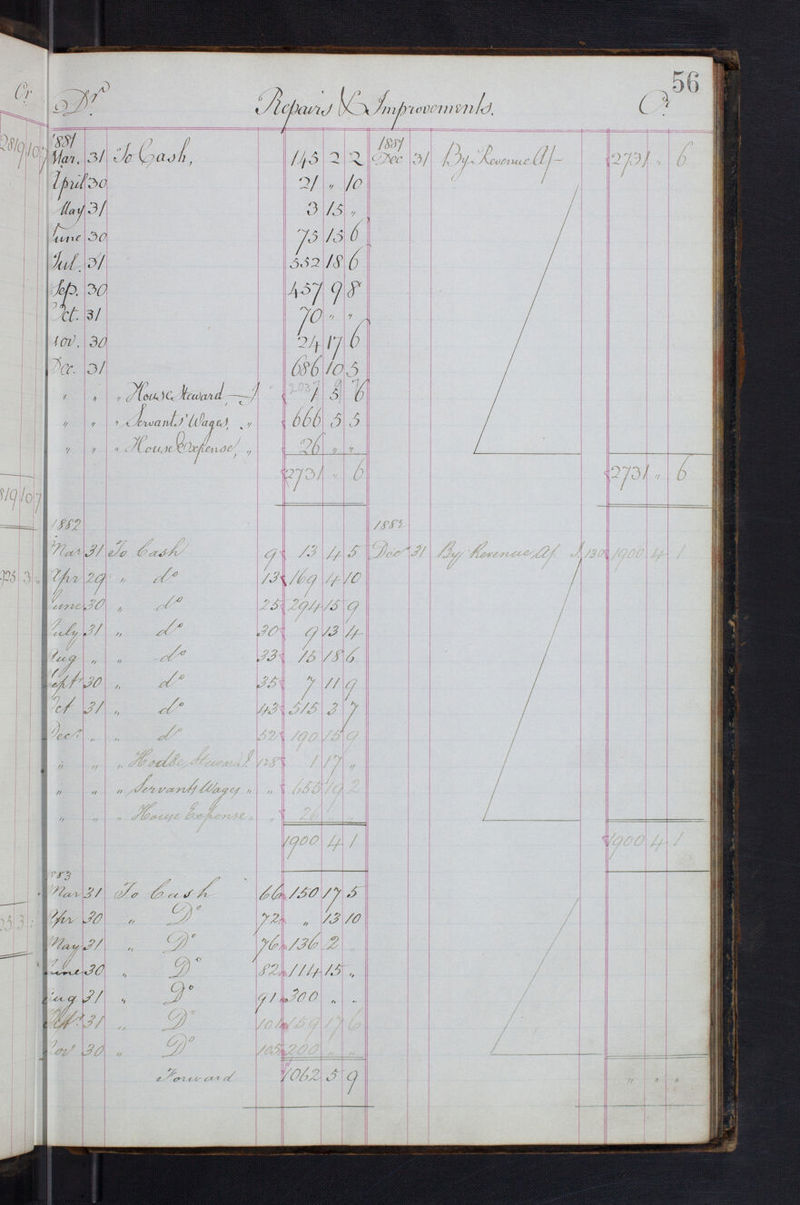 56
Cr
Dr. Repairs & Improvements. Cr.
1881 1881
Mar. 31 To Cash, 145 2 2 Dec 31 By Revenue A/- 2731 " 6
April 30 21 " 10
May 31 3 15 "
June 30 75 15 6
Jul. 31 552 18 6
Sep. 30 457 9 8
Oct. 31 70 " "
Nov. 30 24 17 6
Dec. 31 686 10 5
" " " House Steward 1 5 6
" " " Servants' Wages, " 666 5 5
" " " House Expense, " 26 " "
2731 " 6 2731 " 6
1882 1882
Mar 31 To Cash 9 13 4 5 Decr 31 By Revenue A/ 130 1900 4 1
Apr 29 " do 13 169 4 10
June 30 " do 25 294 15 9
July 31 " do 30 9 13 4
Aug " " do 33 15 18 6
Sept 30 " do 35 7 11 9
Oct 31 " do 43 515 3 7
Decr " " do 52 190 15 9
" " " House Steward 128 1 17 "
" " " Servants Wages " " 655 19 2
" " " House Expense " " 26 " "
1900 4 1 1900 4 1
1883
Mar 31 To Cash 66 150 17 5
Apr 30 " Do 72 " 13 10
May 31 " Do 76 136 2
June 30 " Do 82 114 15 "
Aug 31 " Do 91 300 " "
Oct 31 " Do 101 159 17 6
Nov 30 " Do 105 200 " "
Forward 1062 5 9 " " "